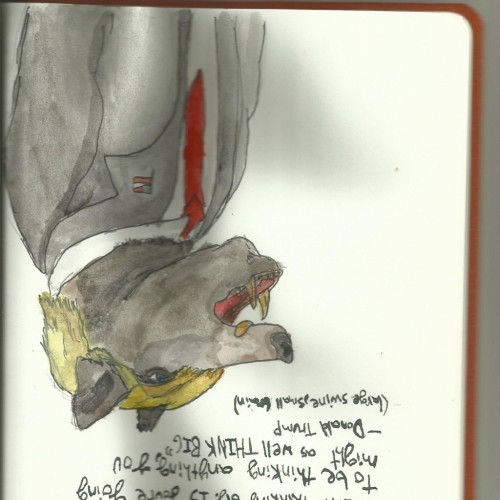 thinking big. If you're going
to be thinking anything you
might as well THINK BIG"
- Donald Trump
(large swine, small brain)